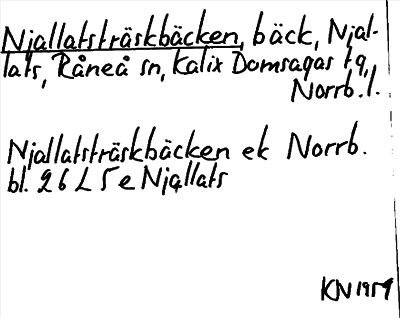 Njallatsträskbäcken, bäck, Njal-
lats, Råneå sn, Kalix Domsagas tg,
Norrb. l.
Njallatsträskbäcken ek Norrb.
bl. 26 L 5 e Njallats
KN 1959